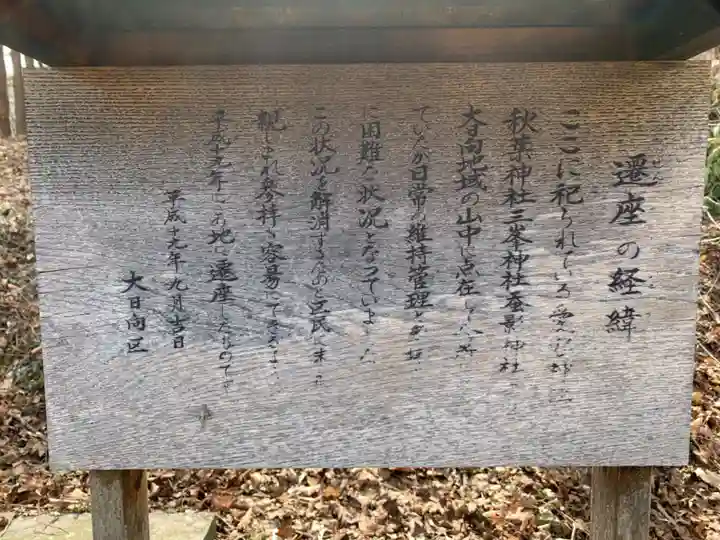 遷座の経緯
ここに祀られている愛宕神社
秋葉神社三峯神社蚕影神社
大日向地域の山中に点在して
ていたが日常の維持管理と
に困難な状況となっていました
この状況を解消するために区民にまた
親しまれ参拝も容易にできる
平成十九年にこの地に遷座したものです
平成十九年九月吉日
大日向区